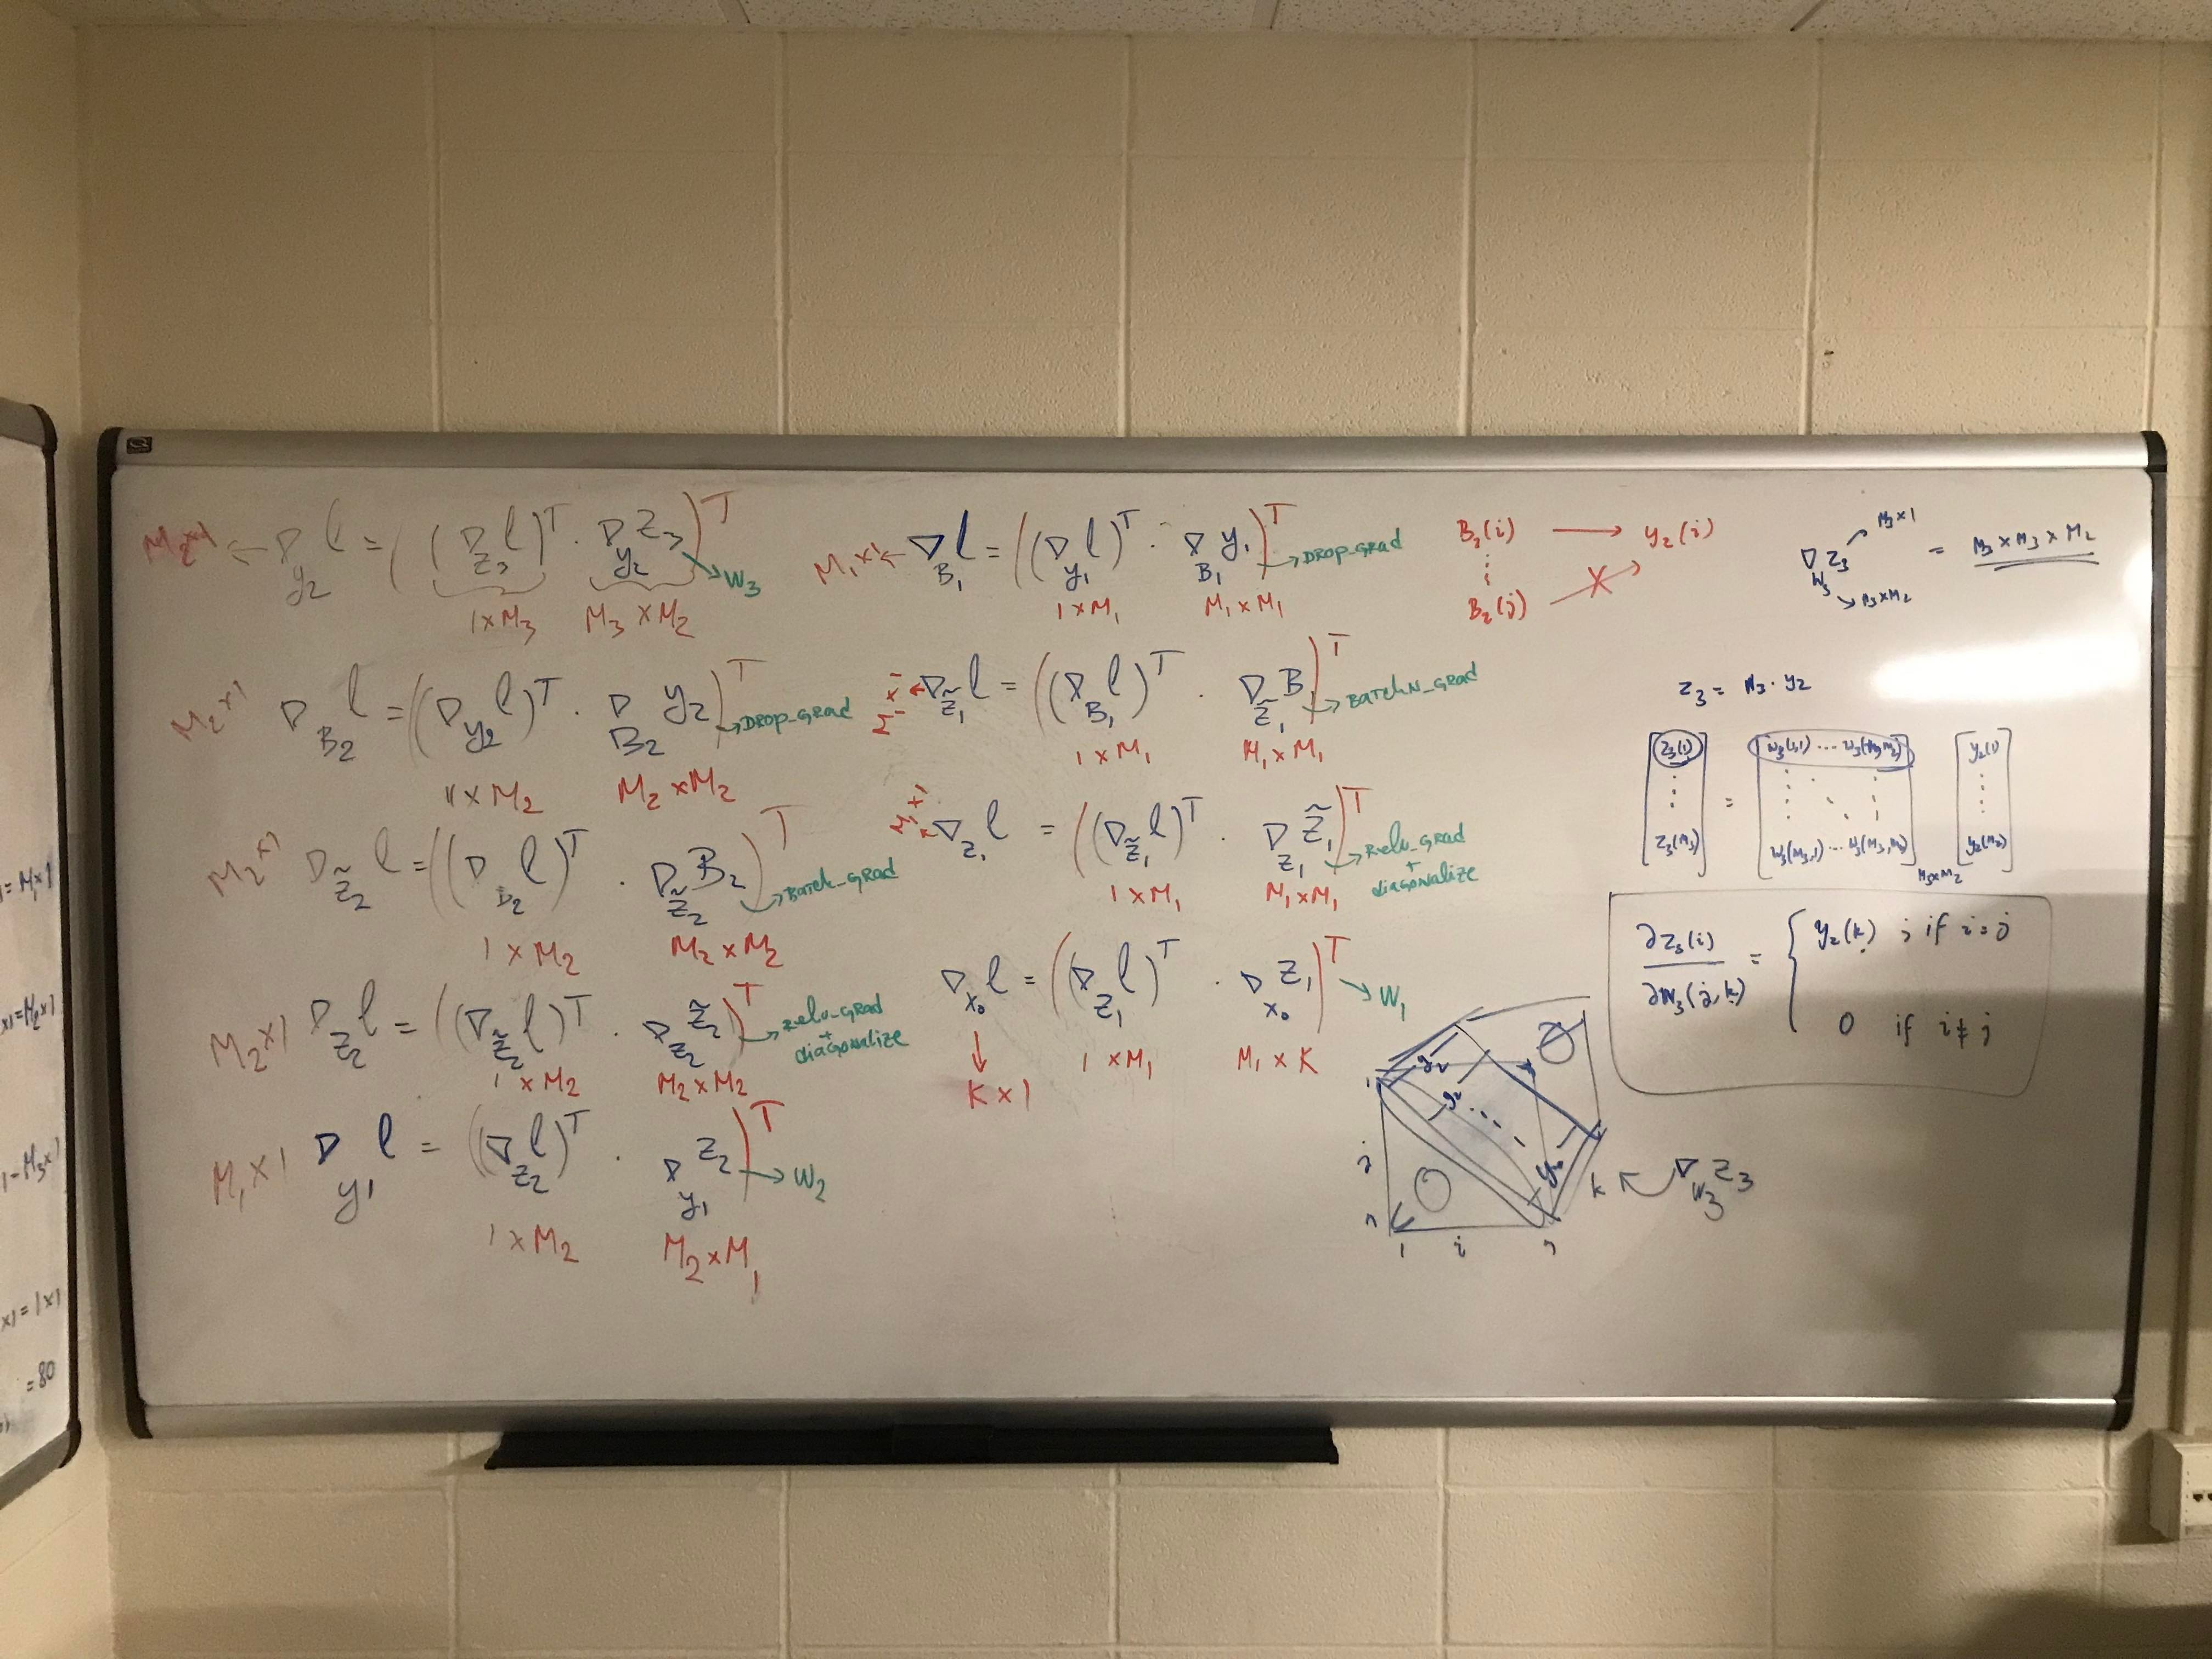 M₂×1 ← ∇_{y₂} l = ((∇_{z₃} l)ᵀ · ∇_{y₂} z₃)ᵀ → W₃
1×M₃ M₃×M₂
M₂×1 ∇_{B₂} l = ((∇_{y₂} l)ᵀ · ∇_{B₂} y₂)ᵀ → DROP_GRad
1×M₂ M₂×M₂
M₂×1 ∇_{z̃₂} l = ((∇_{B₂} l)ᵀ · ∇_{z̃₂} B₂)ᵀ → Batch_GRad
1×M₂ M₂×M₂
M₂×1 ∇_{z₂} l = ((∇_{z̃₂} l)ᵀ · ∇_{z₂} z̃₂)ᵀ → Relu_GRad
+
diagonalize
1×M₂ M₂×M₂
M₁×1 ∇_{y₁} l = ((∇_{z₂} l)ᵀ · ∇_{y₁} z₂)ᵀ → W₂
1×M₂ M₂×M₁
M₁×1 ← ∇_{B₁} l = ((∇_{y₁} l)ᵀ · ∇_{B₁} y₁)ᵀ → DROP_GRad
1×M₁ M₁×M₁
M₁×1 ← ∇_{z̃₁} l = ((∇_{B₁} l)ᵀ · ∇_{z̃₁} B)ᵀ → BatchN_GRad
1×M₁ M₁×M₁
M₁×1 ← ∇_{z₁} l = ((∇_{z̃₁} l)ᵀ · ∇_{z₁} z̃₁)ᵀ → Relu_GRad
+
diagonalize
1×M₁ M₁×M₁
∇_{x₀} l = ((∇_{z₁} l)ᵀ · ∇_{x₀} z₁)ᵀ → W₁
↓
K×1 1×M₁ M₁×K
B₂(i) → y₂(i)
B₂(j)
∇_{W₃} z₃ = M₃×M₃×M₂
M₃×1
M₃×M₂
z₃ = W₃·y₂
z₃(1) w₃(1,1) ··· w₃(1,M₂) y₂(1)
=
z₃(M₃) w₃(M₃,1) ··· w₃(M₃,M₂) y₂(M₂)
M₃×M₂
∂z₃(i)/∂w₃(j,k) = { y₂(k) ; if i=j
0 if i≠j
y₂
y₂
y₂
0
0
1
j
1 i
k ∇_{W₃} z₃
1=M₁×1
×1=M₂×1
1-M₃×1
×1=1×1
=80